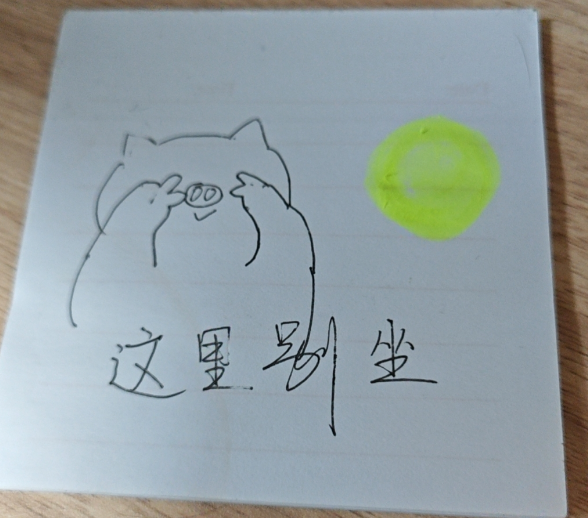 这里别坐